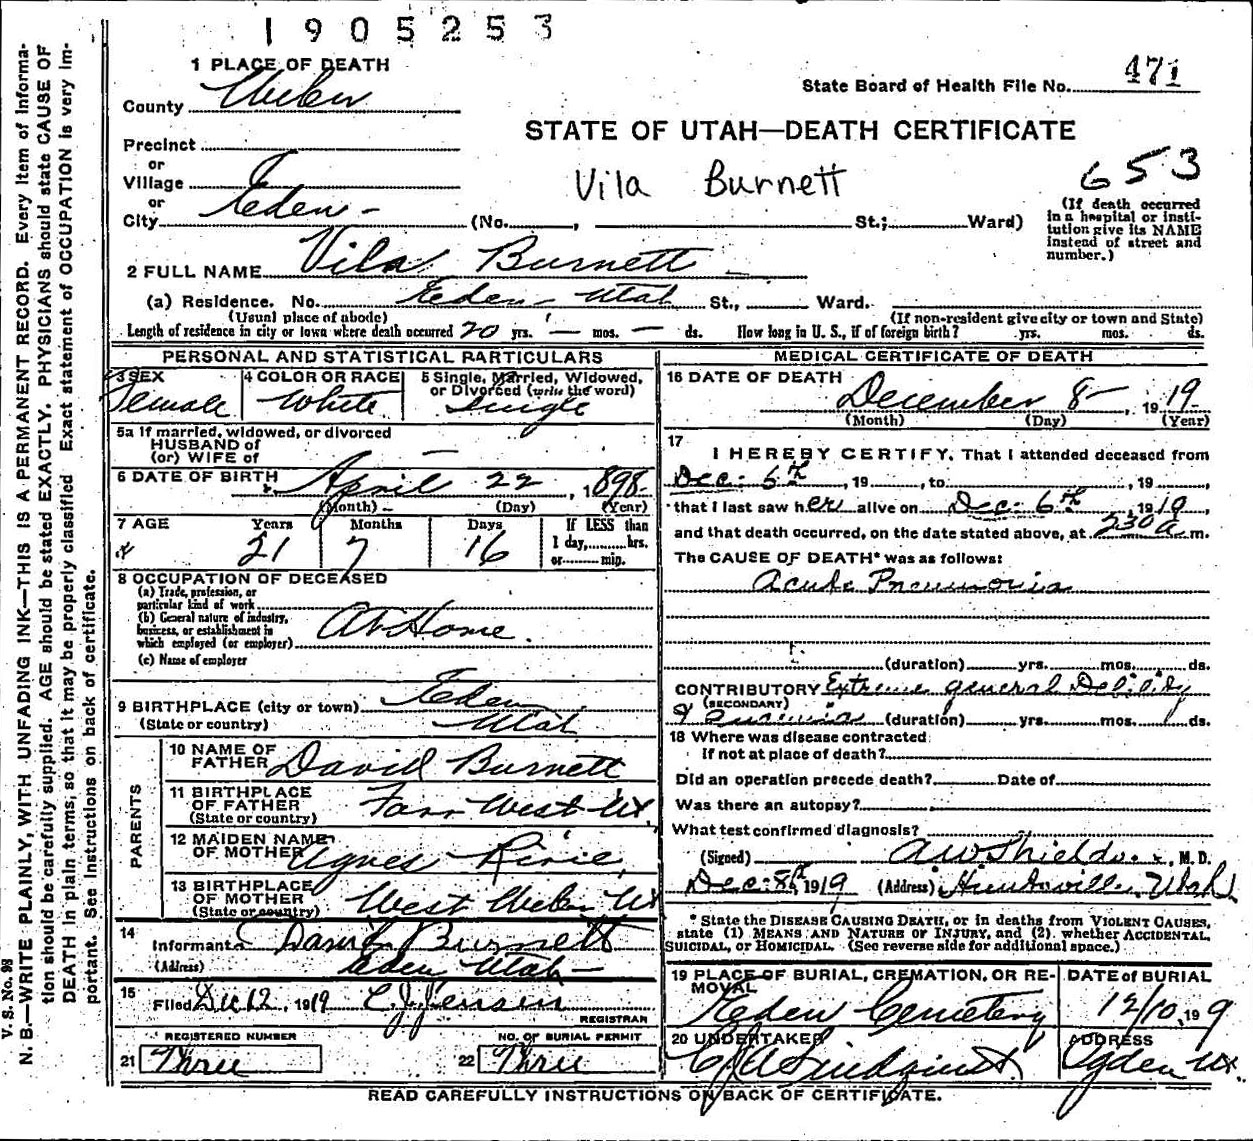 1905253
1 PLACE OF DEATH
State Board of Health File No. 471
County Weber
STATE OF UTAH—DEATH CERTIFICATE
Precinct
or
Village
Vila Burnett
653
or
City Eden - (No. , St.; Ward)
(If death occurred
in a hospital or insti-
tution give its NAME
instead of street and
number.)
2 FULL NAME Vila Burnett
(a) Residence. No. Eden - Utah St., Ward.
(Usual place of abode) (If non-resident give city or town and State)
Length of residence in city or town where death occurred 20 yrs. — mos. — ds. How long in U. S., if of foreign birth? yrs. mos. ds.
PERSONAL AND STATISTICAL PARTICULARS
3 SEX
Female
4 COLOR OR RACE
White
5 Single, Married, Widowed,
or Divorced (write the word)
Single
5a If married, widowed, or divorced
HUSBAND of
(or) WIFE of —
6 DATE OF BIRTH
April 22, 1898
(Month) (Day) (Year)
7 AGE Years Months Days
21 7 16
If LESS than
1 day, hrs.
or min.
8 OCCUPATION OF DECEASED
(a) Trade, profession, or
particular kind of work
(b) General nature of industry,
business, or establishment in
which employed (or employer)
At Home
(c) Name of employer
9 BIRTHPLACE (city or town) Eden
(State or country) Utah
PARENTS
10 NAME OF
FATHER David Burnett
11 BIRTHPLACE
OF FATHER
(State or country)
Farr West Ut.
12 MAIDEN NAME
OF MOTHER Agnes Ririe
13 BIRTHPLACE
OF MOTHER
(State or country)
West Weber Ut
14
Informant David Burnett
(Address) Eden Utah —
15
Filed Dec 12, 1919 C. J. Jensen
REGISTRAR
REGISTERED NUMBER
21 Three
NO. OF BURIAL PERMIT
22 Three
MEDICAL CERTIFICATE OF DEATH
16 DATE OF DEATH
December 8 - , 1919
(Month) (Day) (Year)
17
I HEREBY CERTIFY, That I attended deceased from
Dec: 6th, 19 , to , 19 ,
that I last saw her alive on Dec: 6th, 1919,
and that death occurred, on the date stated above, at 230 a m.
The CAUSE OF DEATH* was as follows:
Acute Pneumonia
(duration) yrs. mos. ds.
CONTRIBUTORY Extreme general Debility
(SECONDARY)
(duration) yrs. mos. ds.
18 Where was disease contracted
if not at place of death?
Did an operation precede death? Date of
Was there an autopsy?
What test confirmed diagnosis?
(Signed) A W Shields, M. D.
Dec: 8th, 1919 (Address) Huntsville, Utah
* State the DISEASE CAUSING DEATH, or in deaths from VIOLENT CAUSES,
state (1) MEANS AND NATURE OF INJURY, and (2) whether ACCIDENTAL,
SUICIDAL, or HOMICIDAL. (See reverse side for additional space.)
19 PLACE OF BURIAL, CREMATION, OR RE-
MOVAL
Eden Cemetery
DATE of BURIAL
12/10, 1919
20 UNDERTAKER
ADDRESS
Ogden Ut.
READ CAREFULLY INSTRUCTIONS ON BACK OF CERTIFICATE.
V. S. No. 98
N. B.—WRITE PLAINLY, WITH UNFADING INK—THIS IS A PERMANENT RECORD. Every item of informa-
tion should be carefully supplied. AGE should be stated EXACTLY. PHYSICIANS should state CAUSE OF
DEATH in plain terms, so that it may be properly classified. Exact statement of OCCUPATION is very im-
portant. See Instructions on back of certificate.